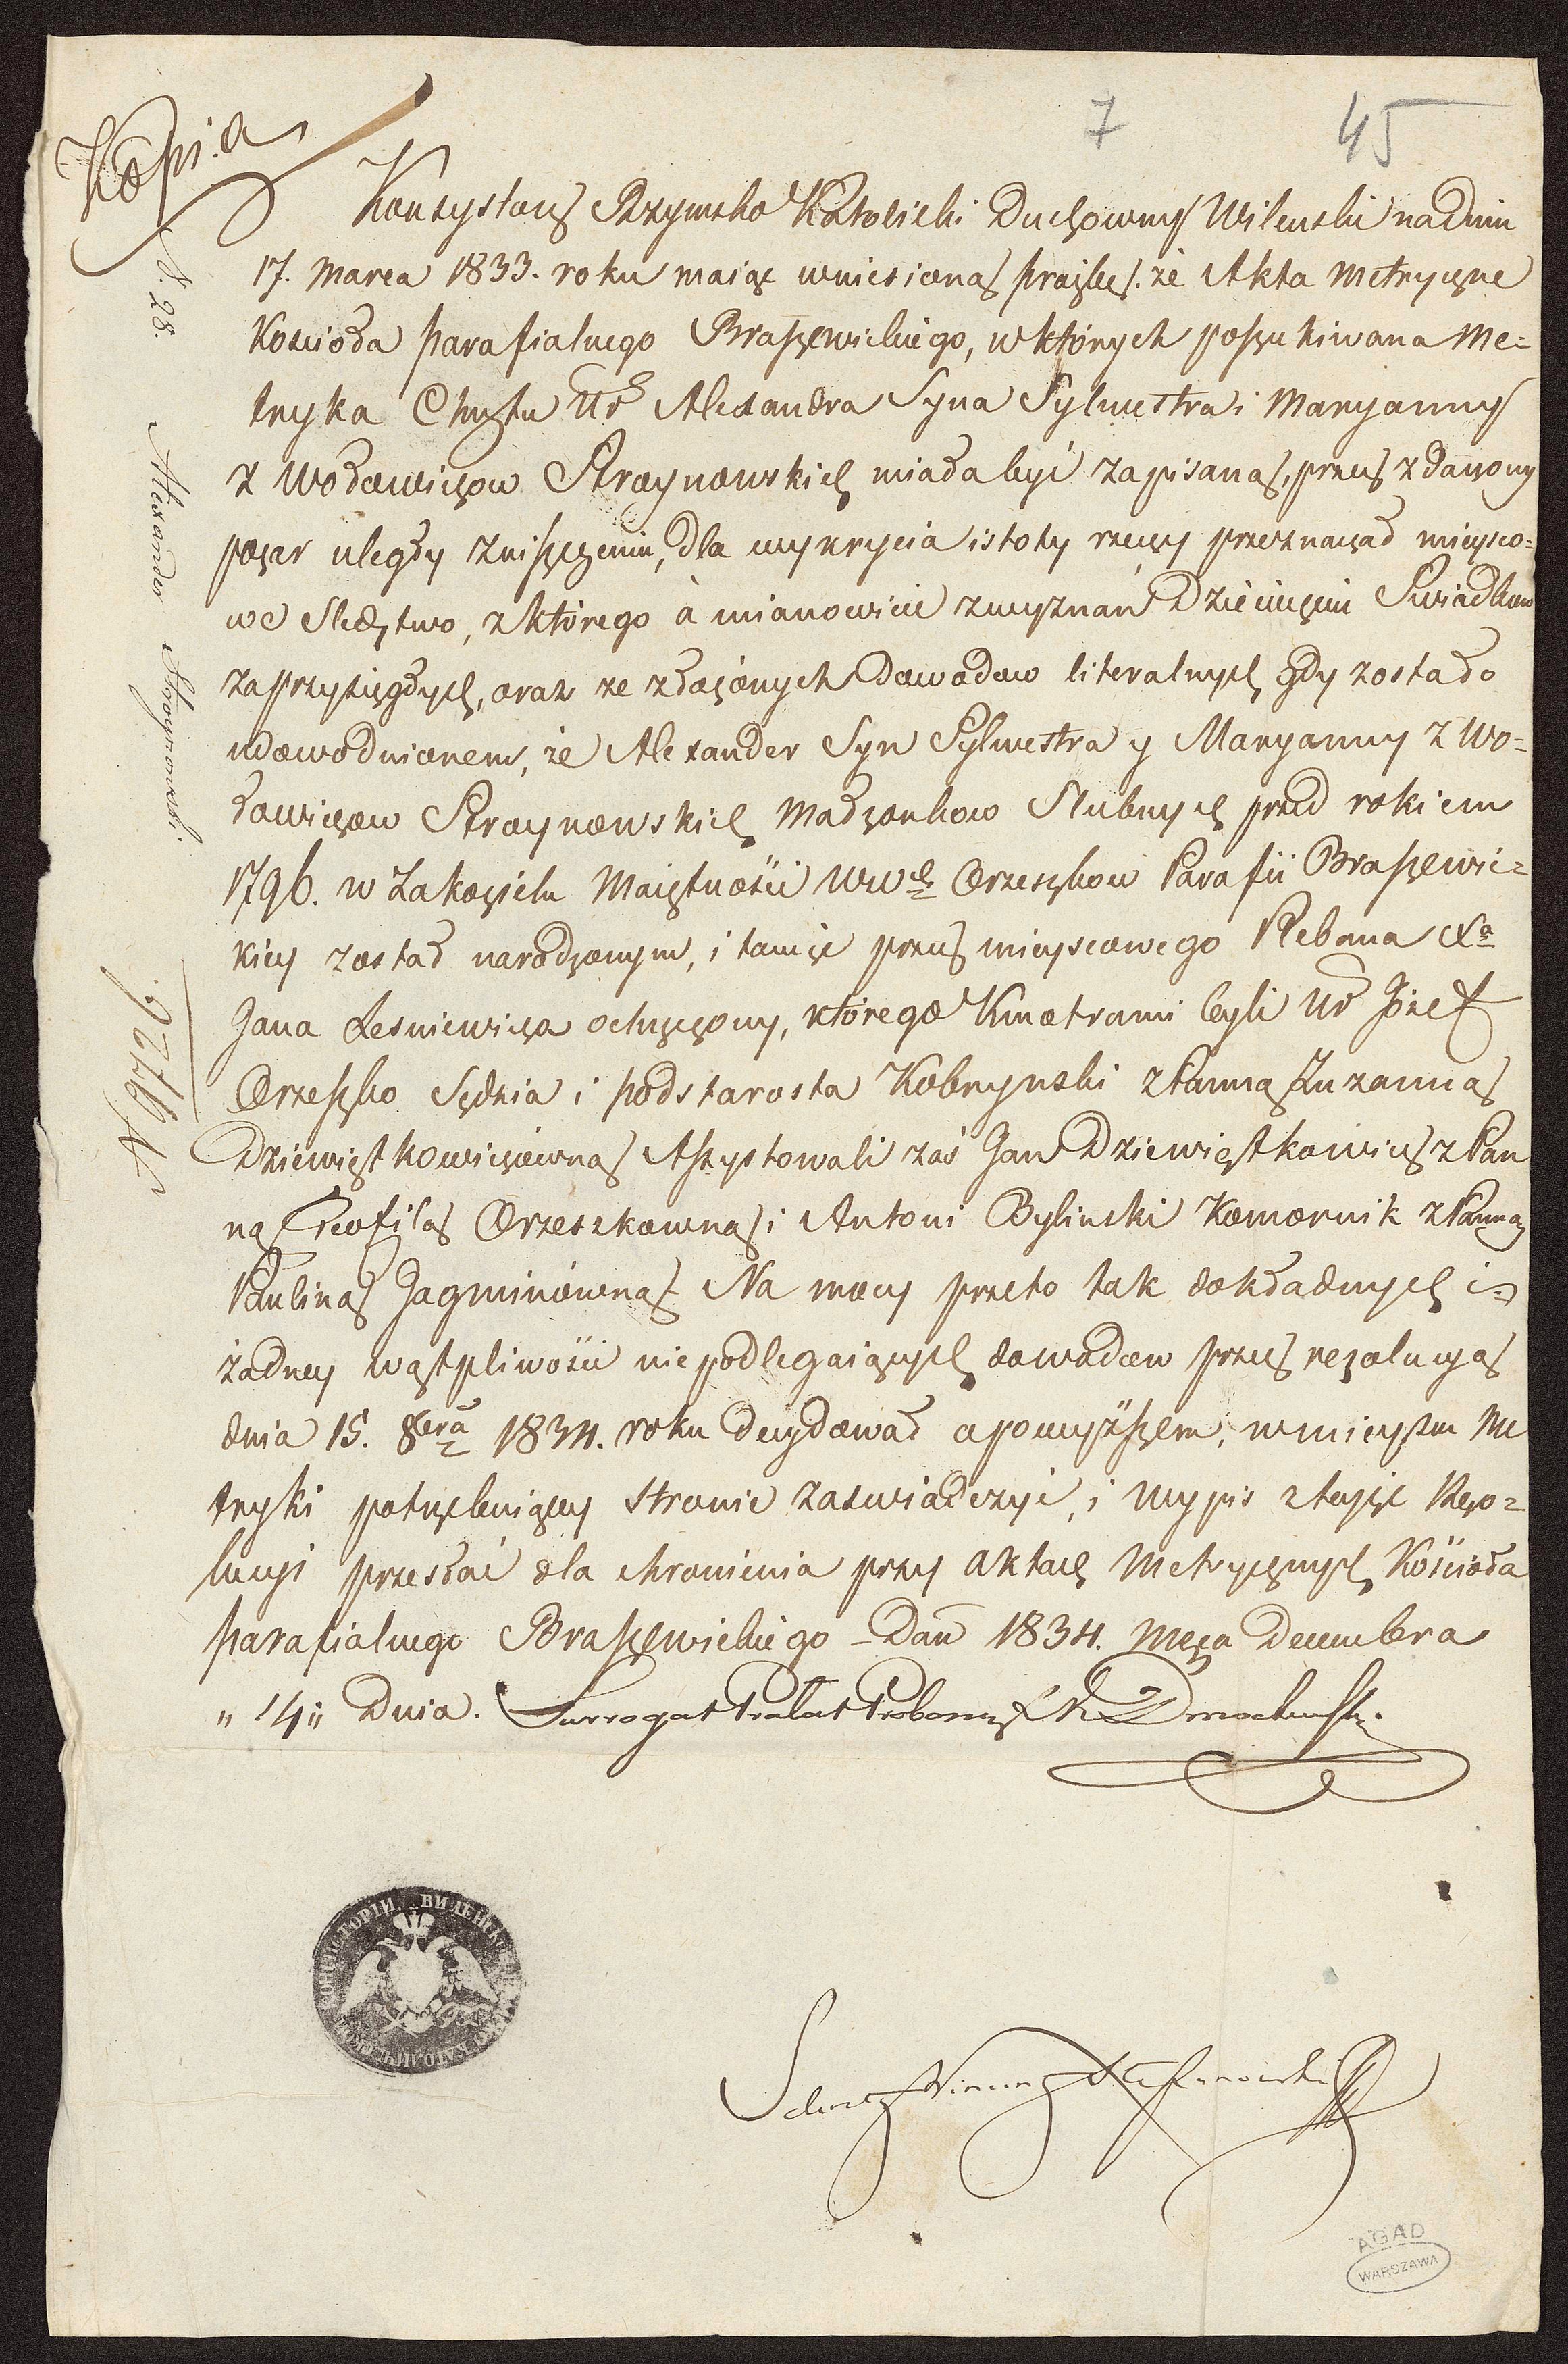 7 45
Kopia
Konsystorz Rzymsko Katolicki Duchowny Wilenski na dniu
17. Marca 1833. roku maiąc wniesioną proźbę. że Akta Metryczne
Kościoła parafialnego Braszewickiego, w których poszukiwana Me=
tryka Chrztu Ur Alexandra Syna Sylwestra i Maryanny
z Wołowiczow Stroynowskich miała być zapisaną, przez zdarzony
pożar uległy zniszczeniu, dla wykrycia istoty rzeczy przeznaczał mieysco=
we Sledztwo, z którego a mianowicie z wyznań Dziewięciu Swiadkow
zaprzysięgłych, oraz ze złożonych Dowodow literalnych gdy zostało
udowodnionem, że Alexander Syn Sylwestra y Maryanny z Wo=
łowiczow Stroynowskich Małżonkow Slubnych przed rokiem
1796. w Zakozielu Maiętności WWch Orzeszkow Parafii Braszewic=
kiey został narodzonym, i tamże przez mieyscowego Plebana Xa
Jana Lesniewicza ochrzczony, którego Kmotrami byli Ur Józef
Orzeszko Sędzia i podstarosta Kobrynski z Panną Zuzanną
Dziewiątkowiczówną Assystowali zaś Jan Dziewiątkowicz z Pan
ną Teofilą Orzeszkowną i Antoni Bylinski Komornik z Panną
Pauliną Jagminówną. Na mocy przeto tak dokładnych i
żadney wątpliwości nie podlegaiących dowodow przez rezolucyą
dnia 15. 8bra 1834. roku decydował o powyższem, w mieyscu Me
tryki potrzebuiącey Stronie zaświadczyć, i wypis z teyże Rezo=
lucyi przesłać dla chronienia przy Aktach Metrycznych Kościoła
parafialnego Braszewickiego – Dan 1834. Mca Decembra
" 14 " Dnia. Surrogat Prałat Proboszcz
N. 28. Alexander Stroynowski.
N 9726.
ВИЛЕНСКО КОНСИСТОРІИ
AGAD
WARSZAWA